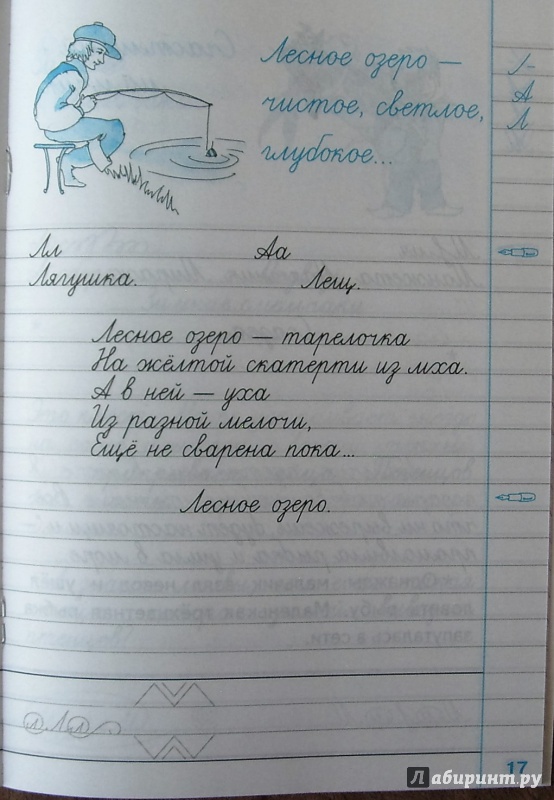 Лесное озеро —
чистое, светлое,
глубокое...
Л
А
Л
Лл Аа
Лягушка. Лещ.
Лесное озеро — тарелочка
На жёлтой скатерти из мха.
А в ней — уха
Из разной мелочи,
Ещё не сварена пока...
Лесное озеро.
17
Лабиринт.ру